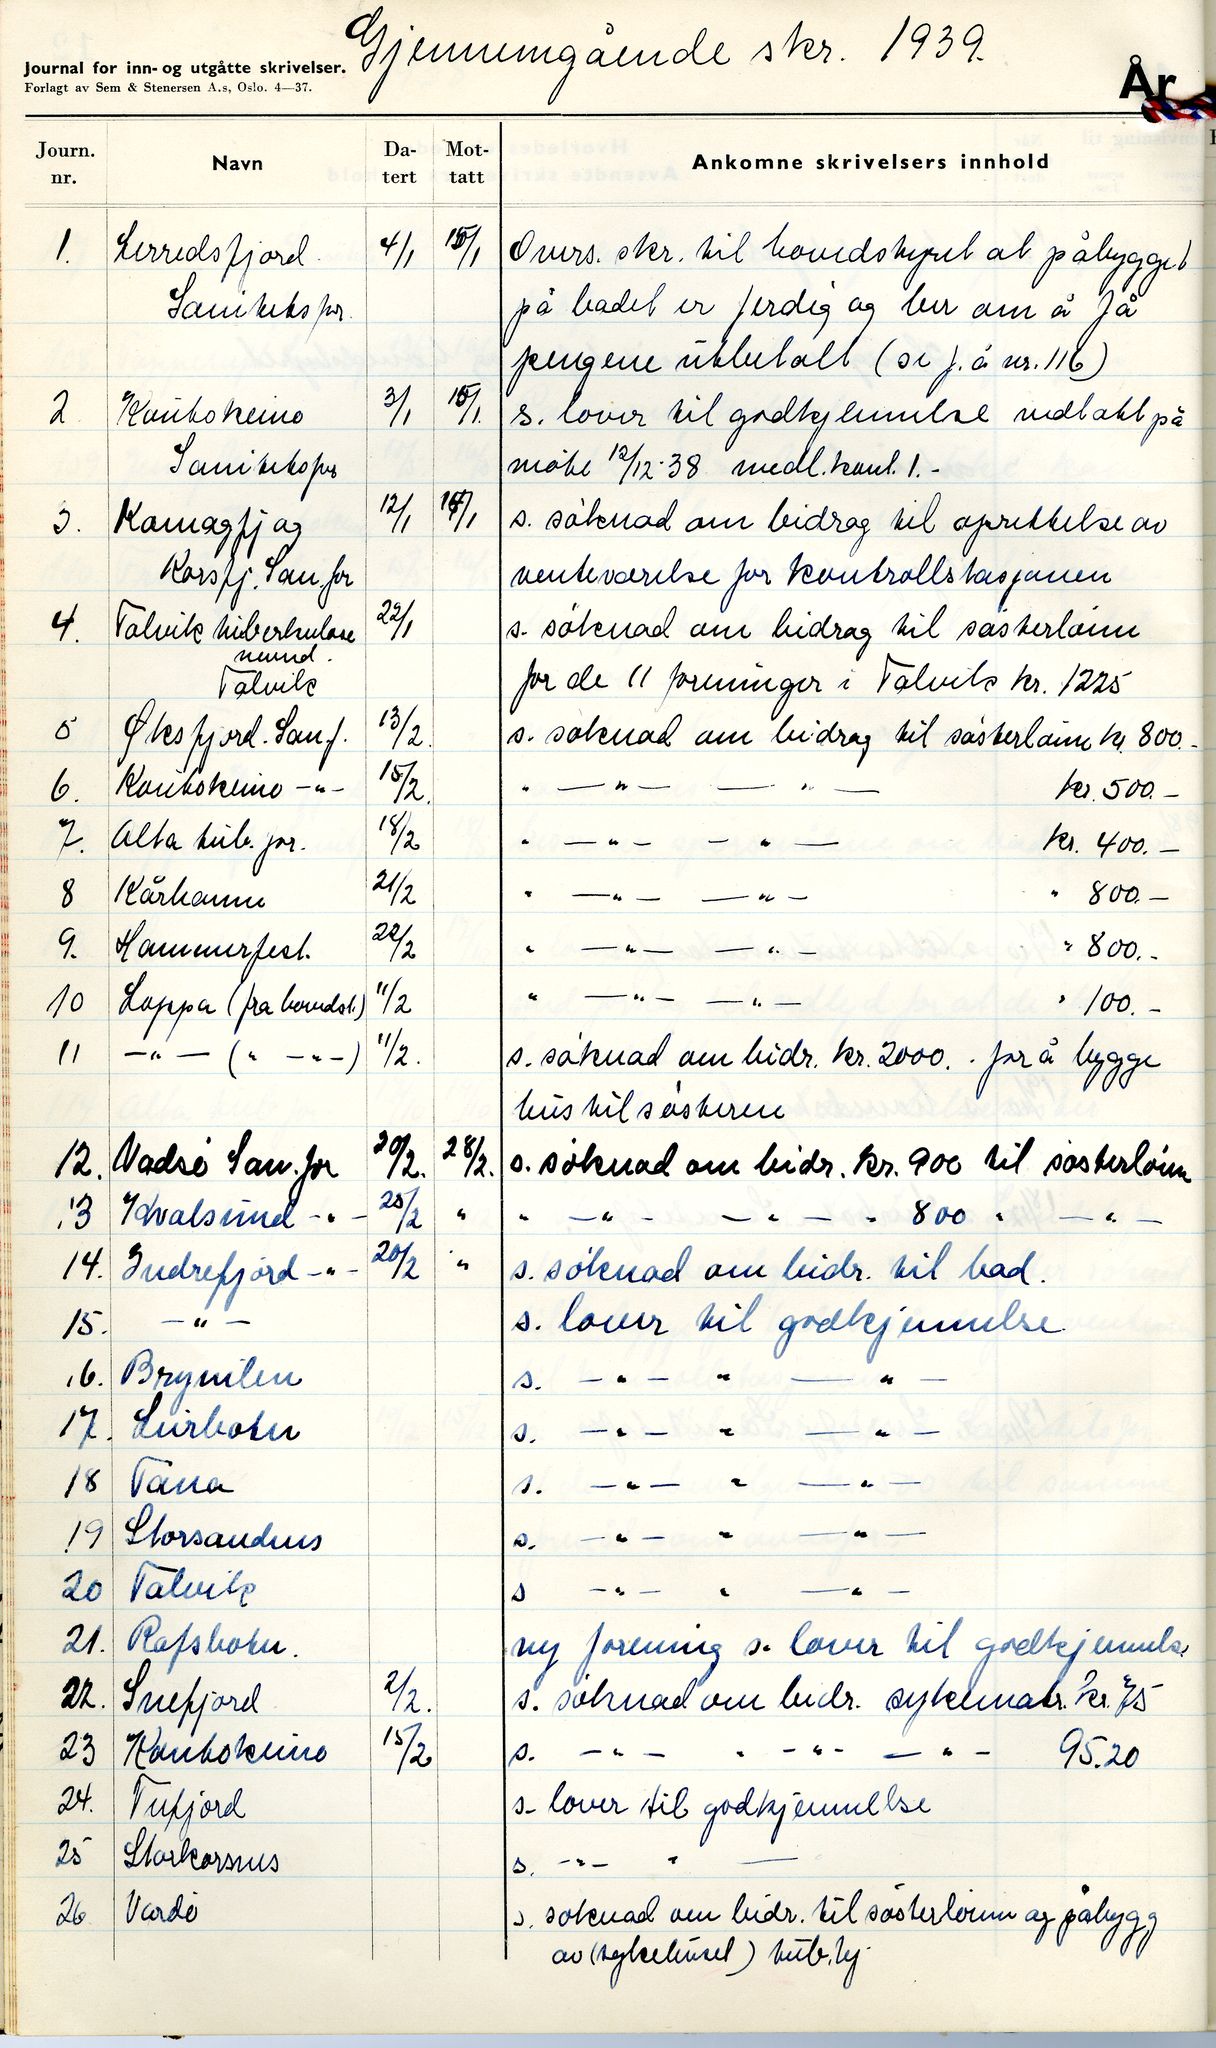 Gjennemgående skr. 1939.
Journal for inn- og utgåtte skrivelser.
Forlagt av Sem & Stenersen A.s, Oslo. 4—37.
År
Journ. nr. Navn Da-tert Mot-tatt Ankomne skrivelsers innhold
1. Lerredsfjord 4/1 15/1 Overs. skr. til hovedstyret at påbygget
Sanitetsfor. på badet er ferdig og ber om å få
pengene utbetalt (se f. å nr. 116)
2 Kautokeino 3/1 15/1. s. lover til godkjennelse vedtatt på
Sanitetsfor møte 12/12-38 medl.kont. 1.-
3. Komagfj og 12/1 14/1 s. söknad om bidrag til oprettelse av
Korsfj. San. for venteværelse for kontrollstasjonen
4. Talvik tuberkulose 22/1 s. söknad om bidrag til sösterlönn
nevnd.
Talvik for de 11 foreninger i Talvik kr. 1225
5 Øksfjord. San.f. 13/2. s. söknad om bidrag til sösterlönn kr. 800.-
6. Kautokeino -"- 15/2. " —"— — " — kr. 500.-
7. Alta tub. for. 18/2 " —"— — " — kr. 400.-
8 Kårhamn 21/2 " —"— —"— " 800.-
9. Hammerfest. 22/2 " —"— —"— " 800.-
10 Loppa (fra hovedst.) 11/2 " —"— —"— " 100.-
11 —"— (" —"—) 11/2. s. söknad om bidr. kr. 2000. - for å bygge
hus til sösteren
12. Vadsö San. for 20/2. 28/2. s. söknad om bidr. kr. 900 til sösterlönn
13 Kvalsund -"- 25/2 " " —"— —"— " 800 " —"—
14. Indrefjord -"- 20/2 " s. söknad om bidr. til bad.
15. —"— s. lover til godkjennelse
16. Brynilen s. —"— " —"—
17. Leirbotn s. —"— " —"—
18 Tana s. —"— " —"—
19 Storsandnes s. —"— " —"—
20 Talvik s —"— " —"—
21. Rafsbotn. ny forening s. lover til godkjennelse
22. Snefjord 2/2. s. söknad om bidr. sykematr. kr. 75
23 Kautokeino 15/2 s. —"— " -"- —"— 95.20
24. Tufjord s. lover til godkjennelse
25 Storkorsnes s. -"- " —
26 Vardö s. söknad om bidr. til sösterlönn og påbygg
av (sykehuset) tub.hj.